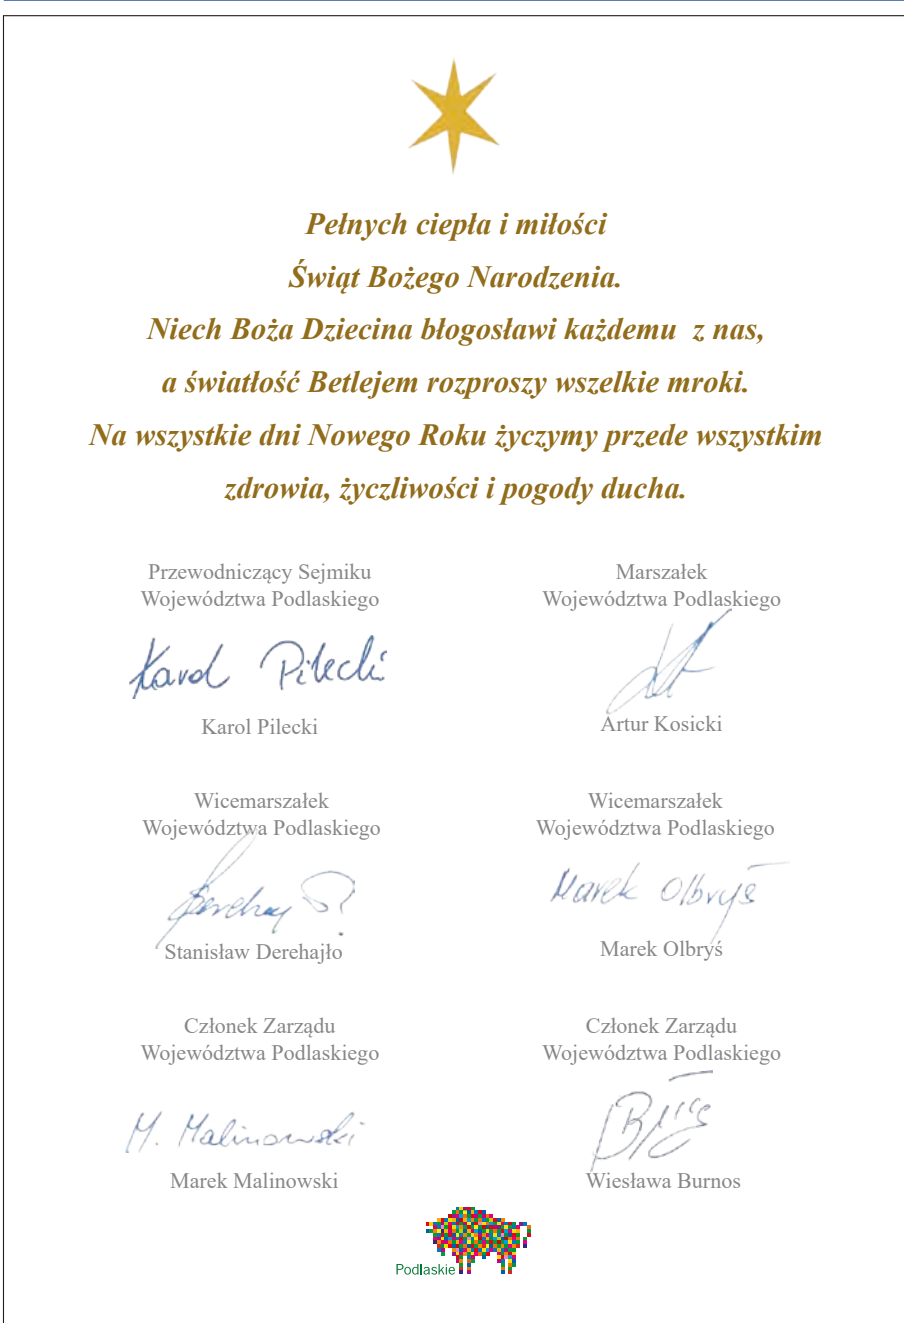 Pełnych ciepła i miłości
Świąt Bożego Narodzenia.
Niech Boża Dziecina błogosławi każdemu z nas,
a światłość Betlejem rozproszy wszelkie mroki.
Na wszystkie dni Nowego Roku życzymy przede wszystkim
zdrowia, życzliwości i pogody ducha.
Przewodniczący Sejmiku
Województwa Podlaskiego
Karol Pilecki
Karol Pilecki
Marszałek
Województwa Podlaskiego
Artur Kosicki
Wicemarszałek
Województwa Podlaskiego
Stanisław Derehajło
Wicemarszałek
Województwa Podlaskiego
Marek Olbryś
Marek Olbryś
Członek Zarządu
Województwa Podlaskiego
M. Malinowski
Marek Malinowski
Członek Zarządu
Województwa Podlaskiego
Wiesława Burnos
Podlaskie